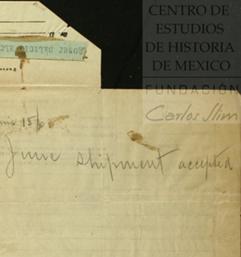 CENTRO DE
ESTUDIOS
DE HISTORIA
DE MEXICO
FUNDACIÓN
Carlos Slim
June shipment accepted